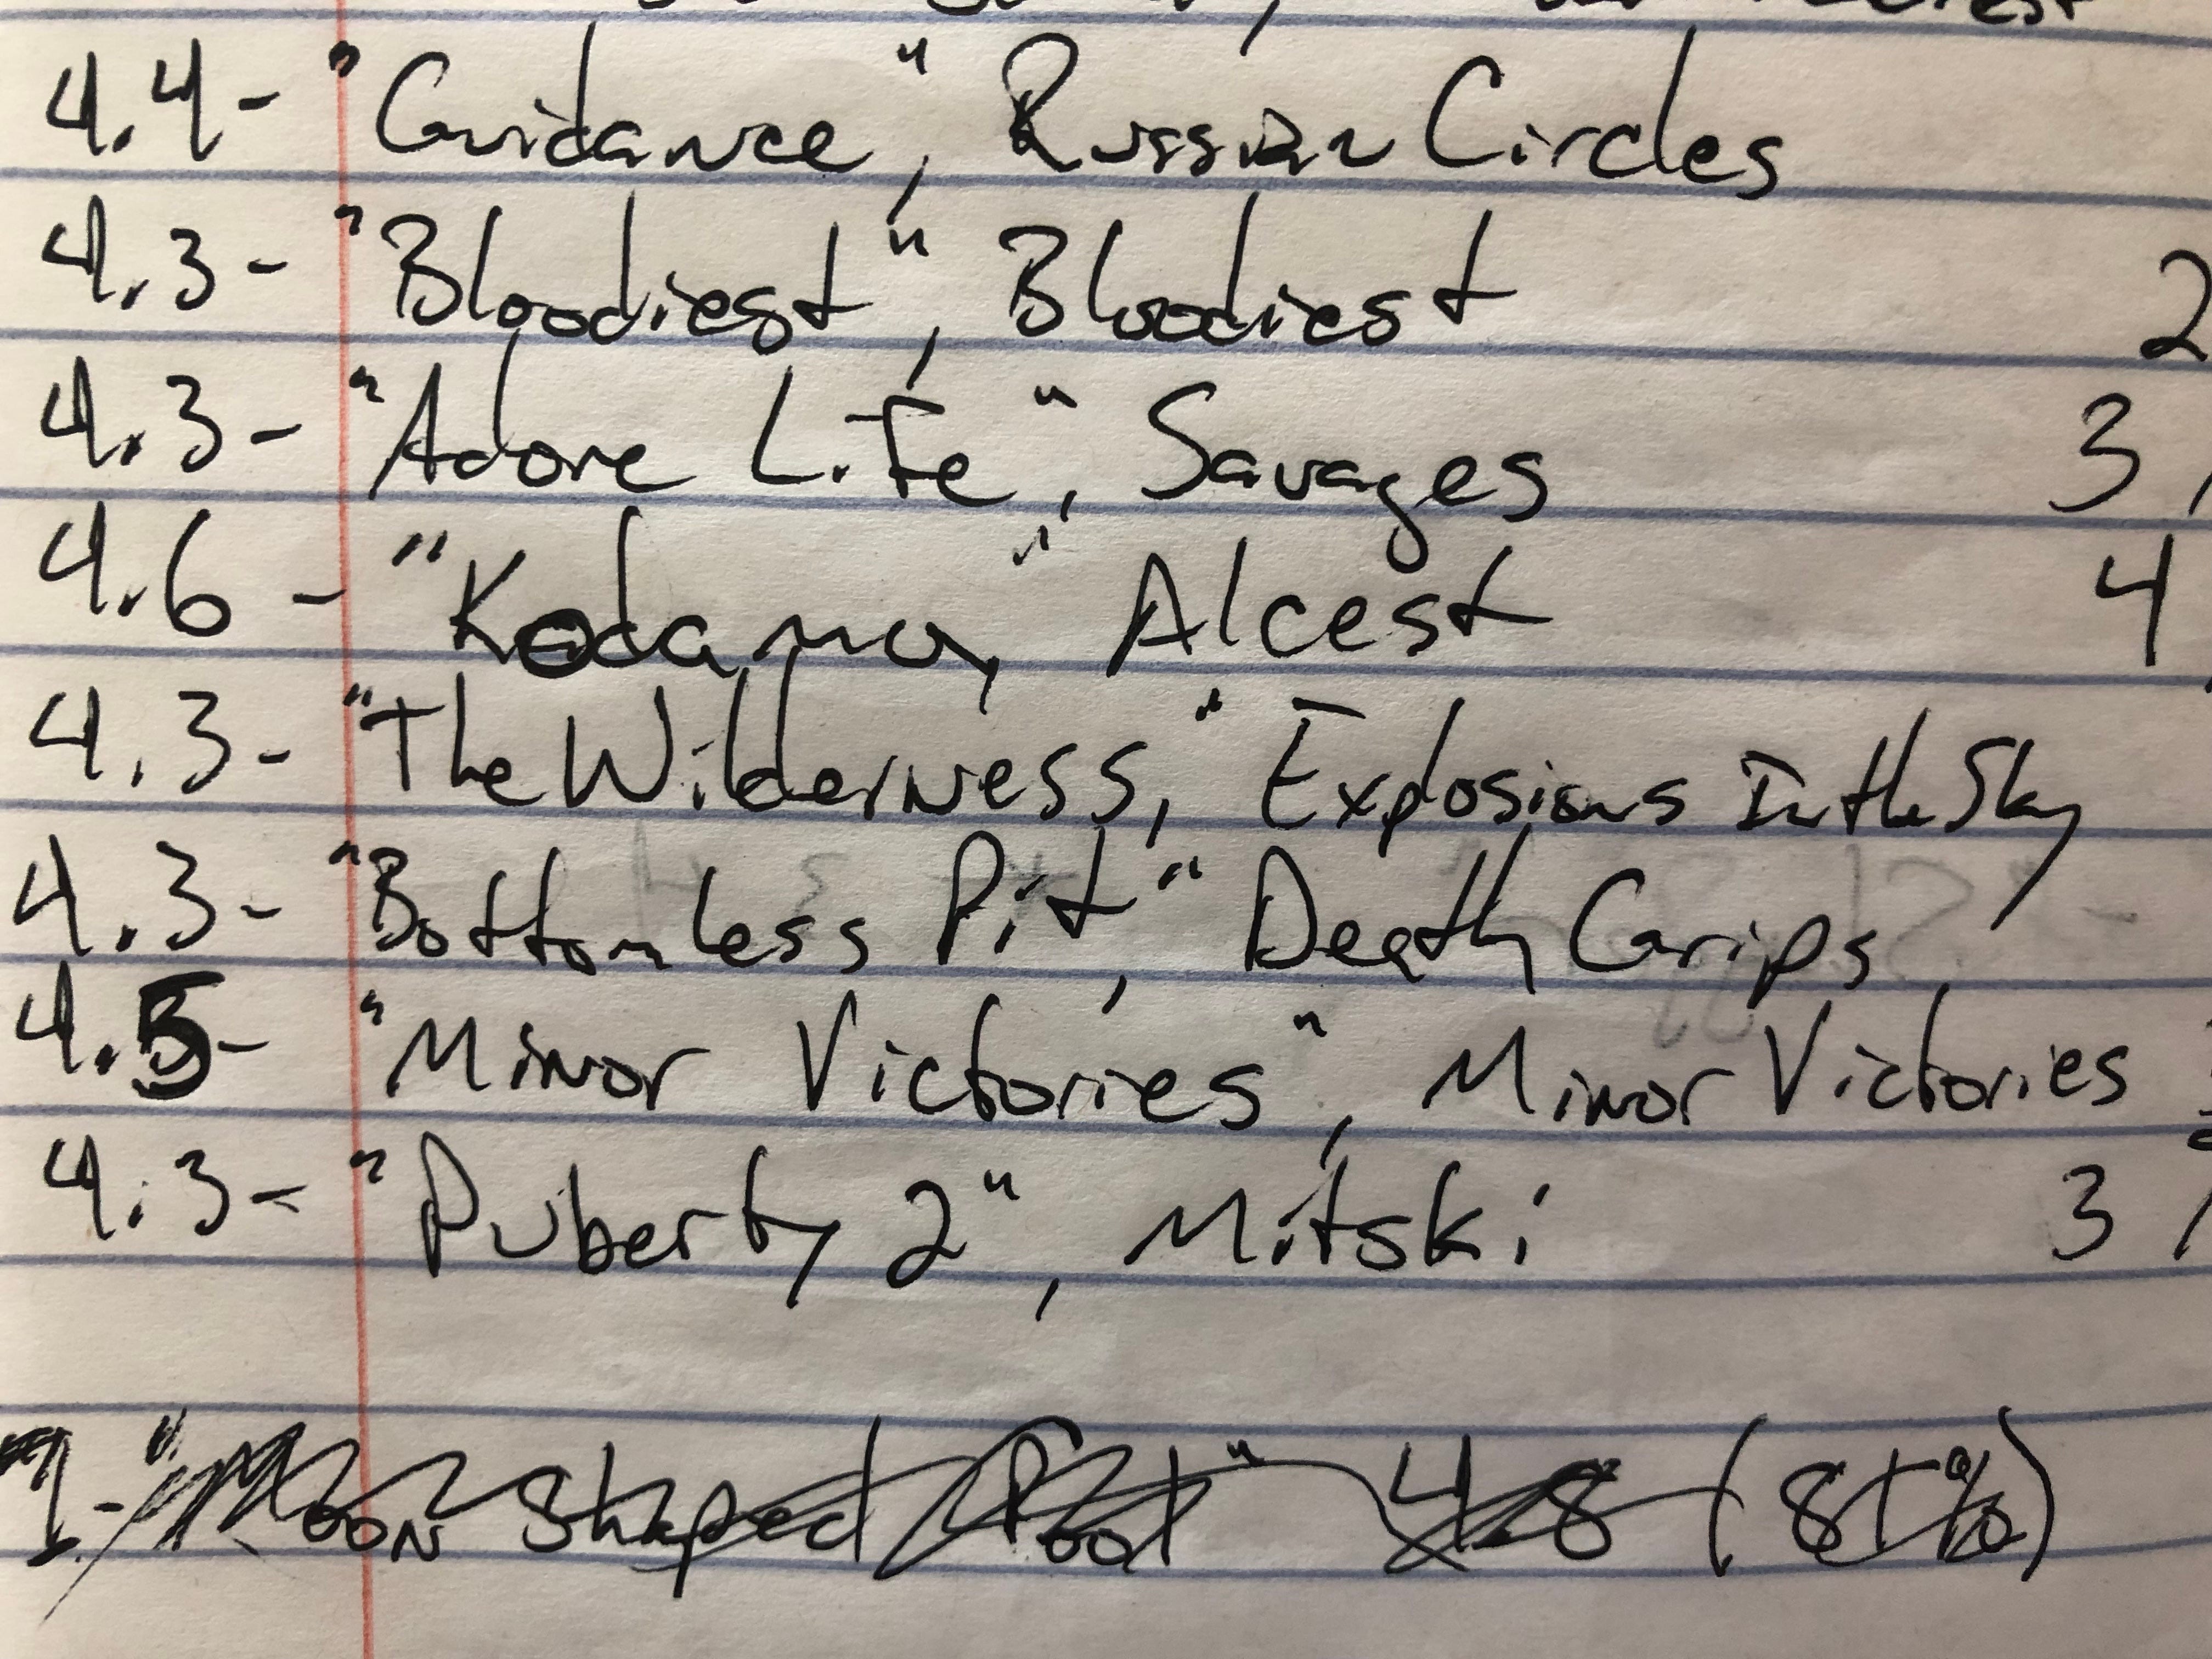 4.4- "Guidance", Russian Circles
4.3- "Bloodiest", Bloodiest 2
4.3- "Adore Life", Savages 3
4.6- "Kodama," Alcest 4
4.3- "The Wilderness," Explosions In the Sky
4.3- "Bottomless Pit," Death Grips
4.5- "Minor Victories", Minor Victories
4.3- "Puberty 2", Mitski 3
1- "Moon Shaped Pool" 4.8 (81%)